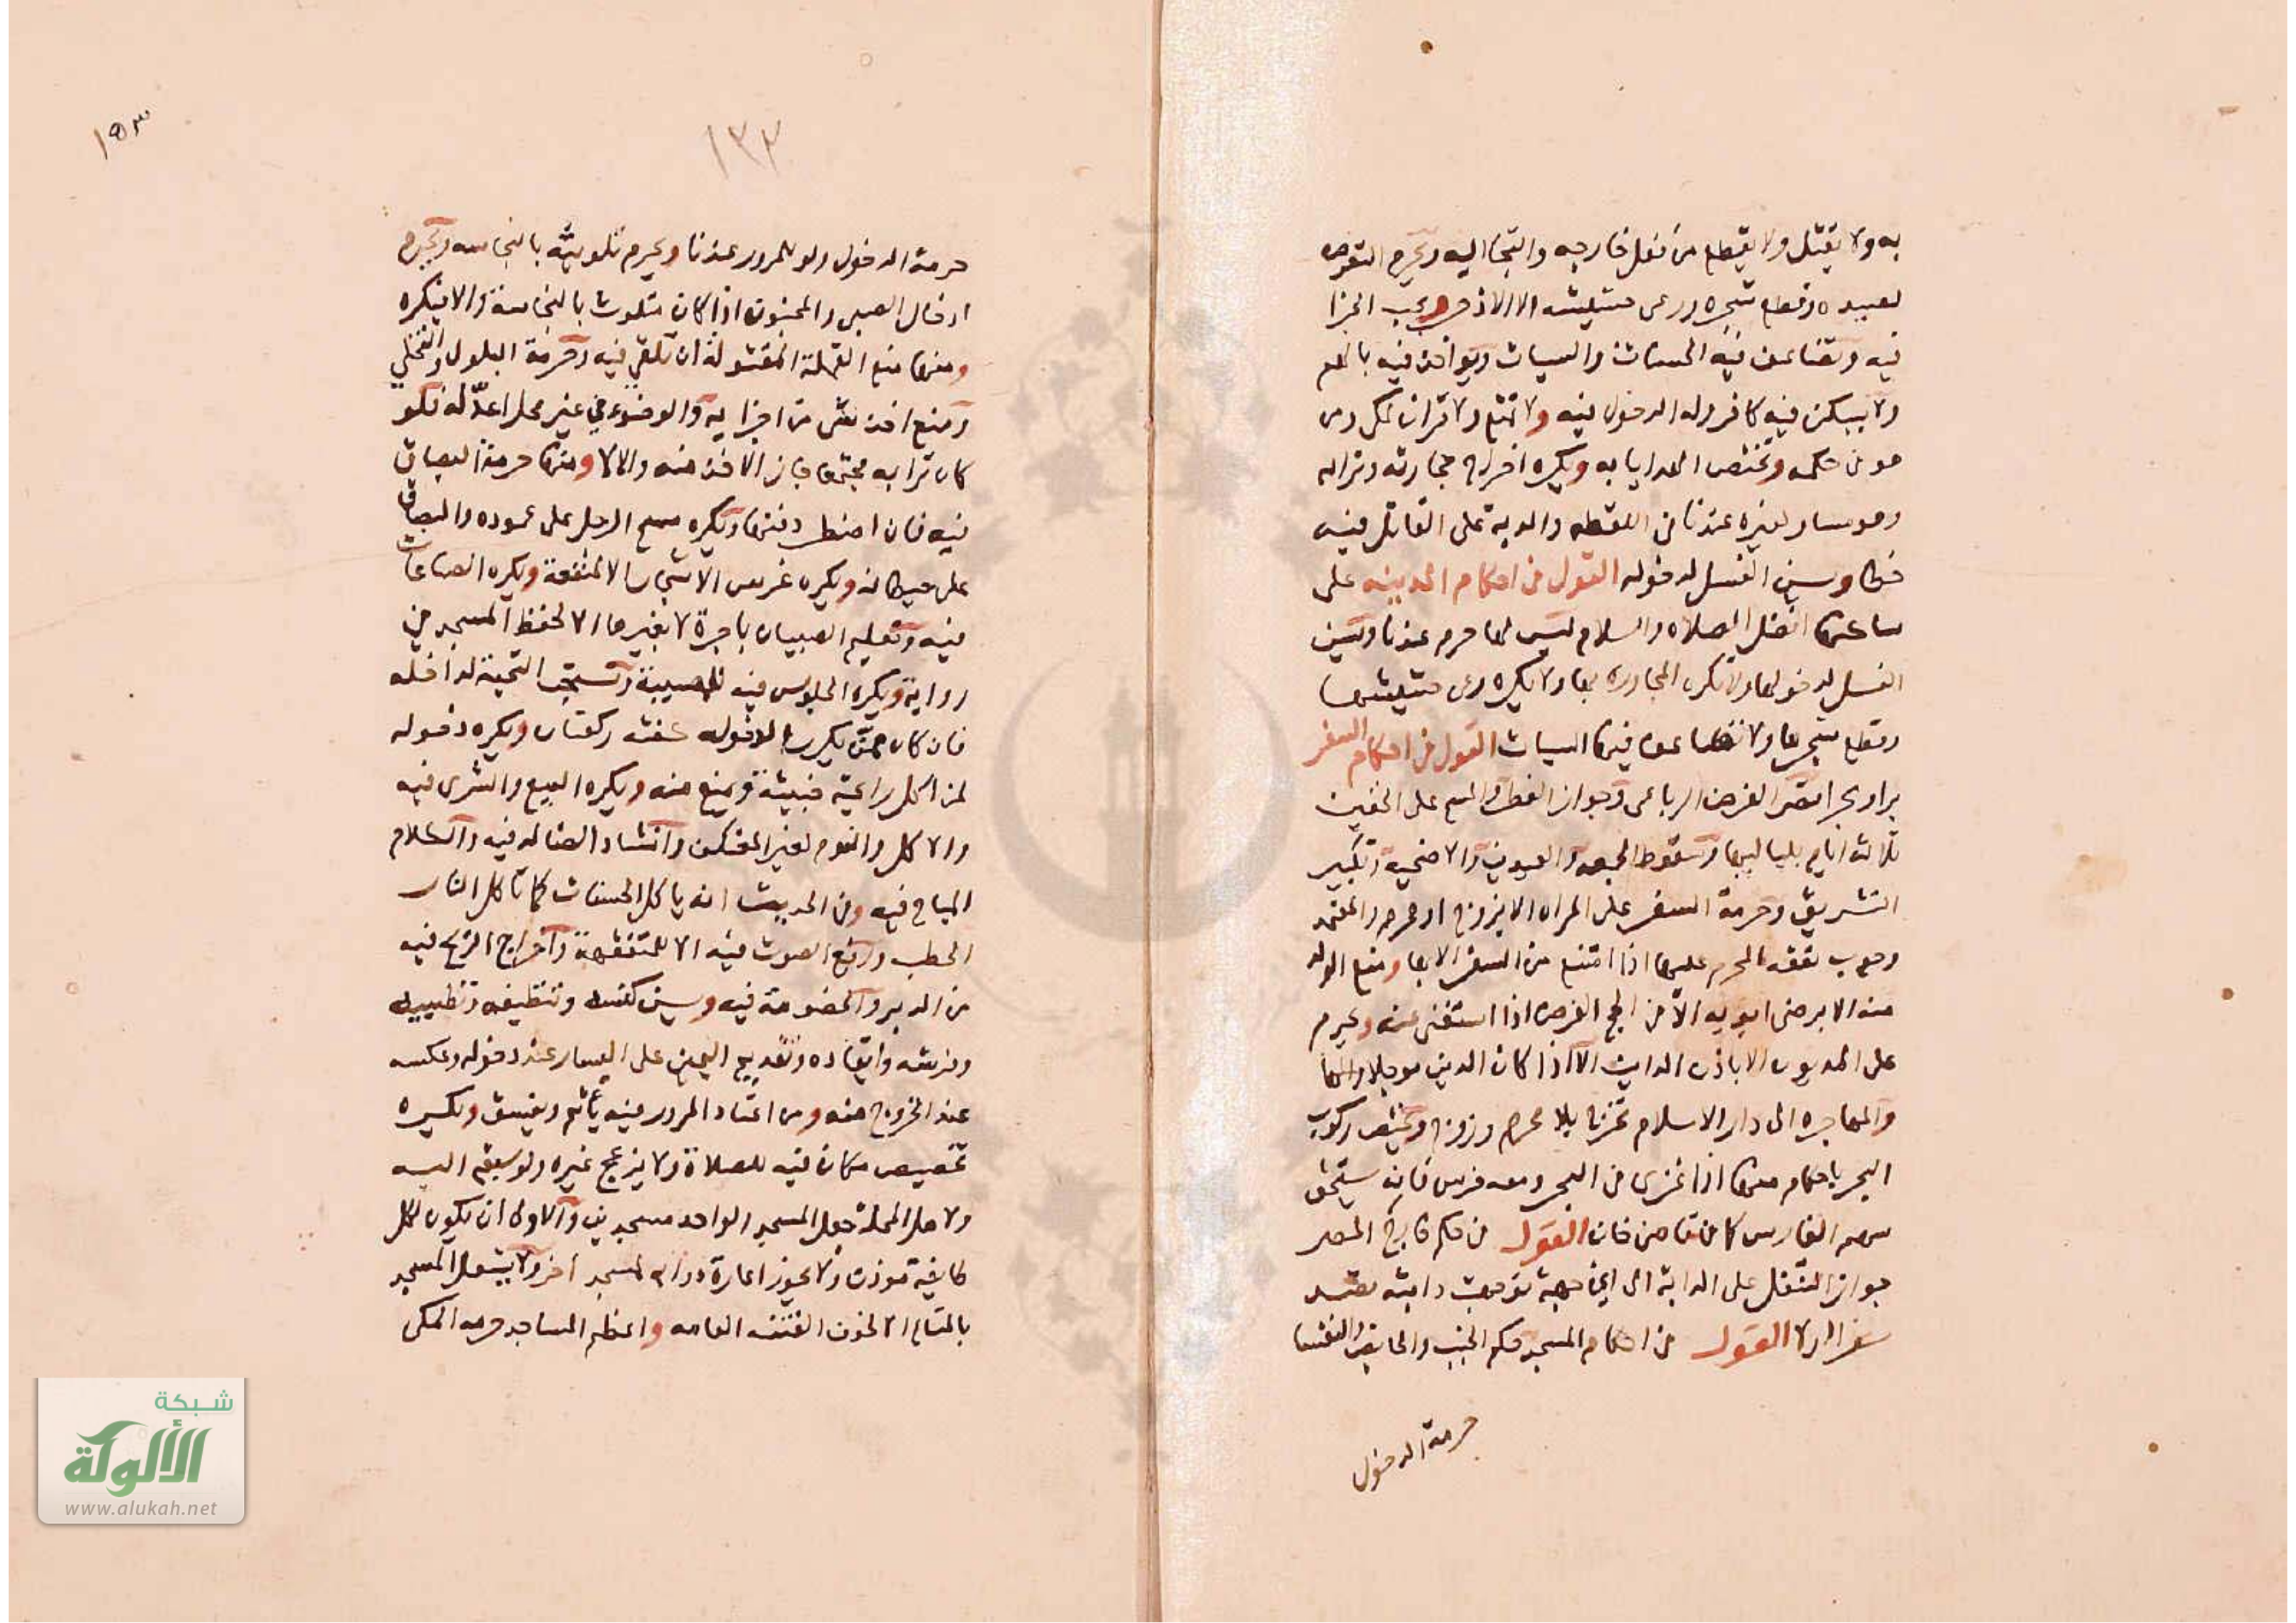 به ولا يقتل ولا يقطع من فعل خارجه والتجا اليه ويحرم التعرض
لصيده وقطع شجره ورعى حشيشه الا الاذخر ويجب الجزا
فيه وتضاعف فيه الحسنات والسيات ويواخذ فيه بالهم
ولا يسكن فيه كافر وله الدخول فيه ولا تمتع ولا قران لمكي ومن
هو في حكمه وتختص الهدايا به ويكره اخراج حجارته وترابه
وهو مساو لغيره عندنا في اللقطه والدية على القاتل فيه
خطا ويسن الغسل لدخوله القول في احكام المدينه على
ساكنها افضل الصلاه والسلام ليس لها حرم عندنا ويسن
الغسل لدخولها ولا تكره المجاوره بها ولا يكره رعى حشيشها
وقطع شجرها ولا تضاعف فيها السيات القول في احكام السفر
برا وبحرا قصر الفرض الرباعى وجواز الفطر والمسح على الخفين
ثلاثه ايام بلياليها وسقوط الجمعه والعيدين والاضحية وتكبير
التشريق وحرمة السفر على المراه الا بزوج او محرم والمعتمد
وجوب نفقه المحرم عليها اذا امتنع من السفر الا بها ومنع الولد
منه الا برضى ابويه الا في الحج الفرض اذا استغنى عنه ويحرم
على المديون الا باذن الداين الا اذا كان الدين موجلا
والمهاجره الى دار الاسلام بلا محرم وزوج ويختص ركوب
البحر باحكام منها اذا غزى في البحر ومعه فرس فانه يستحق
سهم الفارس كما في قاضى خان القول في حكم خارج المصر
جواز التنفل على الدابة الى اي جهة توجهت دابته
سفرا او لا القول في احكام المسجد حكم الجنب والحايض والنفسا
حرمة الدخول
١٣٣
١٥٣
حرمة الدخول ولو للمرور عندنا ويحرم تلويثه بالنجاسه ويحرم
ادخال الصبى والمجنون اذا كان متلوث بالنجاسة والا فيكره
ومنها منع القملة المقتولة ان تلقى فيه وحرمة البول والتخلي
ومنع اخذ شى من اجزايه والوضوء في غير محل اعد له فلو
كان ترابه مجتمعا جاز الاخذ منه والا لا ومنها حرمة البصاق
فيه فان اضطر دفنها ويكره مسح الرجل على عموده والبصاق
على حيطانه ويكره غرس الاشجار الا لمنفعة ويكره الصناعات
فيه وتعليم الصبيان باجرة لا بغيرها الا لحفظ المسجد في
رواية ويكره الجلوس فيه للمصيبة وتستحب التحية لداخله
فان كان ممن يكرر الدخول كفته ركعتان ويكره دخوله
لمن اكل رايحته خبيثة ويمنع منه ويكره البيع والشرى فيه
والاكل والنوم لغير المعتكف وانشاد الضاله فيه والكلام
المباح فيه وفي الحديث انه ياكل الحسنات كما تاكل النار
الحطب ورفع الصوت فيه الا للمتفقهة واخراج الريح فيه
من الدبر والخصومة فيه ويسن كنسه وتنظيفه وتطييبه
وفرشه وايقاده وتقديم اليمين على اليسار عند دخوله وعكسه
عند الخروج منه ومن اعتاد المرور فيه يأثم ويفسق ويكره
تخصيص مكان فيه للصلاة ولا يزعج غيره ولو سبقه اليه
ولاهل المحلة جعل المسجد الواحد مسجدين والاولى ان يكون لكل
طايفة موذن ولا يجوز اعارة ادواته لمسجد أخر ولا يشغل المسجد
بالمتاع الا لخوف الفتنه العامه واعظم المساجد حرمه المكى
شبكة
الألوكة
www.alukah.net